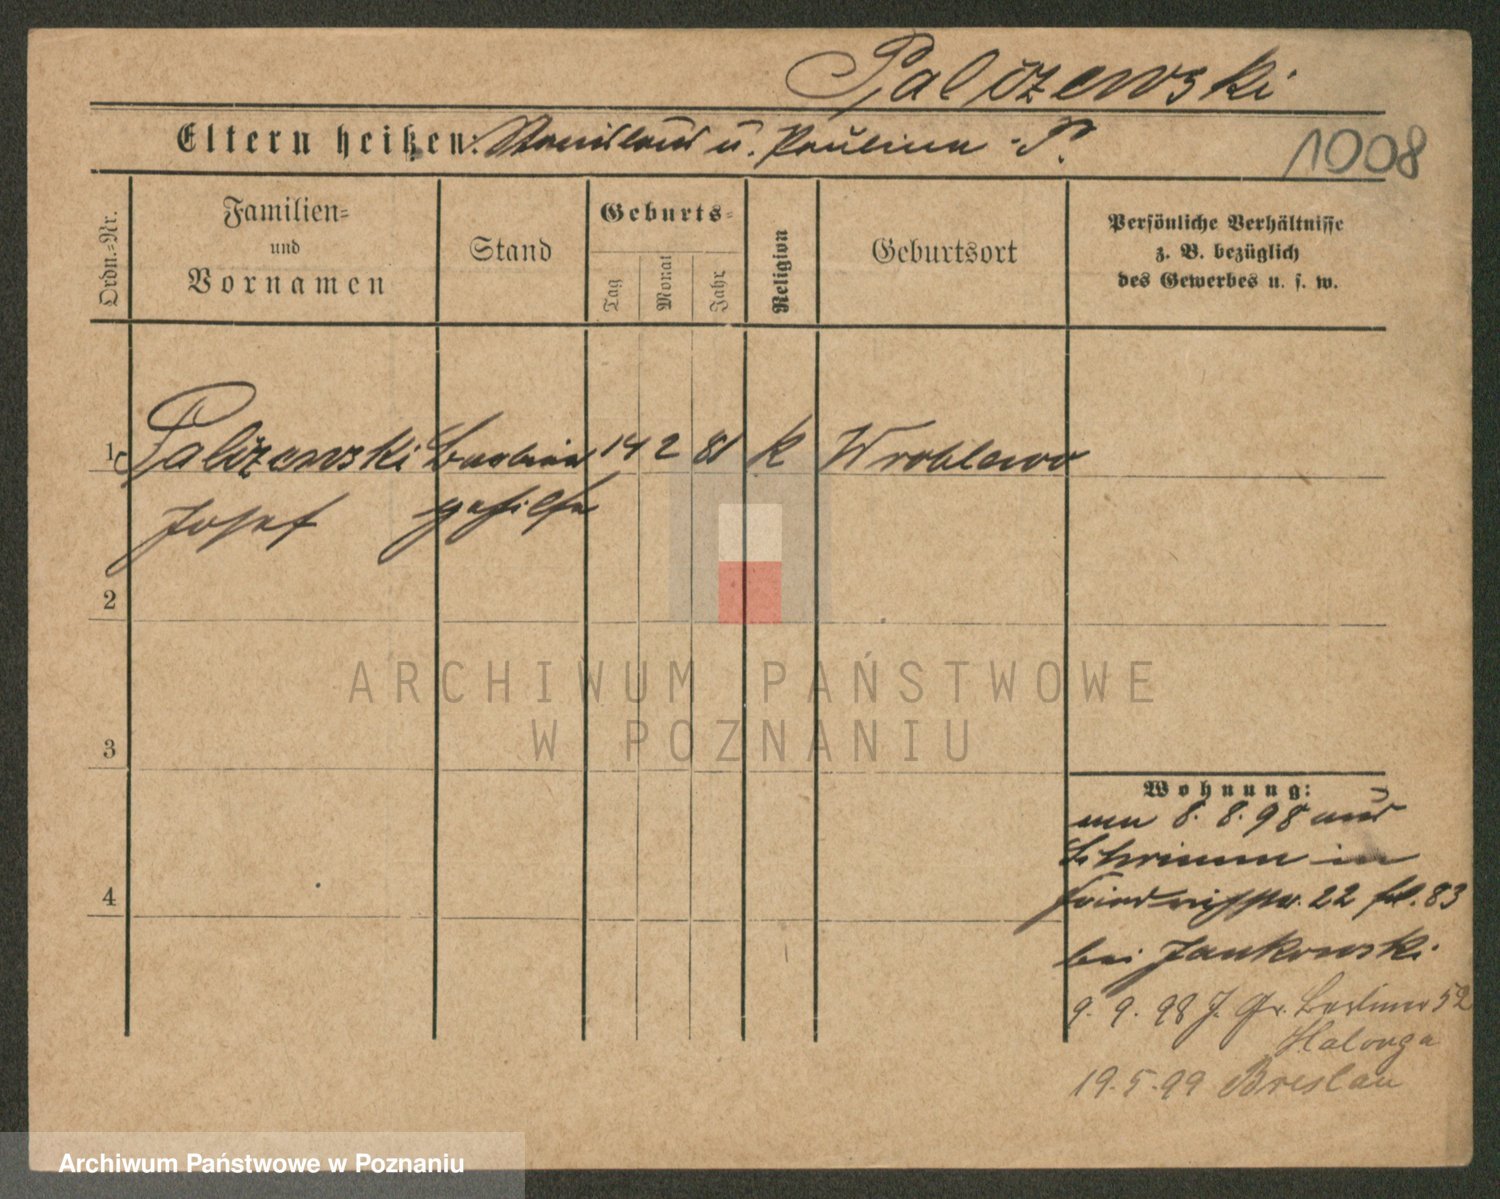 Palizewski
Eltern heißen: Stanislaus u. Paulina P.
1008
Ordn.=Nr.
Familien=
und
Vornamen
Stand
Geburts=
Tag
Monat
Jahr
Religion
Geburtsort
Persönliche Verhältnisse
z. B. bezüglich
des Gewerbes u. s. w.
1 Palizewski Barbier 14 2 81 k Wroblewo
Josef gehilfe
2
3
4
ARCHIWUM PAŃSTWOWE
W POZNANIU
Wohnung:
8. 8. 98 aus
Schrimm in
22 83
bei Jankowski
9. 9. 98 J. Gr. Berliner 52
19.5.99 Breslau
Archiwum Państwowe w Poznaniu